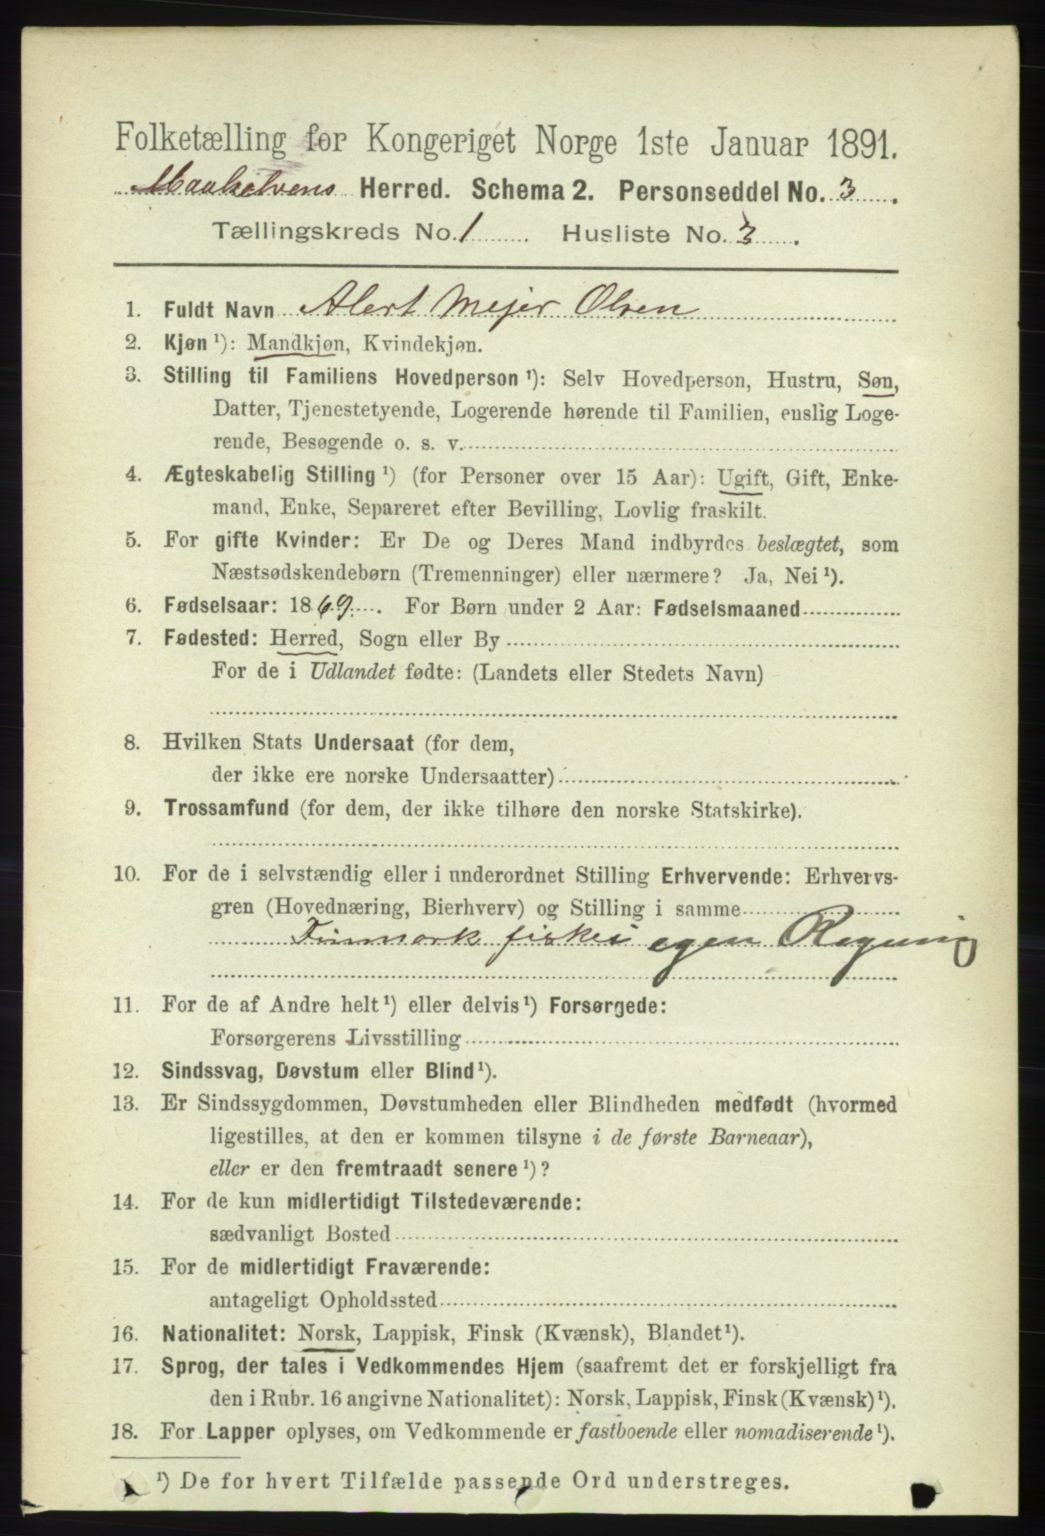 Folketælling for Kongeriget Norge 1ste Januar 1891.
Maalselvens Herred. Schema 2. Personseddel No. 3.
Tællingskreds No. 1. Husliste No. 3.
1. Fuldt Navn Alert Mejer Olsen
2. Kjøn ¹): Mandkjøn, Kvindekjøn.
3. Stilling til Familiens Hovedperson ¹): Selv Hovedperson, Hustru, Søn,
Datter, Tjenestetyende, Logerende hørende til Familien, enslig Loge-
rende, Besøgende o. s. v.
4. Ægteskabelig Stilling ¹) (for Personer over 15 Aar): Ugift, Gift, Enke-
mand, Enke, Separeret efter Bevilling, Lovlig fraskilt.
5. For gifte Kvinder: Er De og Deres Mand indbyrdes beslægtet, som
Næstsødskendebørn (Tremenninger) eller nærmere? Ja, Nei ¹).
6. Fødselsaar: 1869. For Børn under 2 Aar: Fødselsmaaned
7. Fødested: Herred, Sogn eller By
For de i Udlandet fødte: (Landets eller Stedets Navn)
8. Hvilken Stats Undersaat (for dem,
der ikke ere norske Undersaatter)
9. Trossamfund (for dem, der ikke tilhøre den norske Statskirke).
10. For de i selvstændig eller i underordnet Stilling Erhvervende: Erhvervs-
gren (Hovednæring, Bierhverv) og Stilling i samme
Finmark fisker egen Regning
11. For de af Andre helt ¹) eller delvis ¹) Forsørgede:
Forsørgerens Livsstilling
12. Sindssvag, Døvstum eller Blind ¹).
13. Er Sindssygdommen, Døvstumheden eller Blindheden medfødt (hvormed
ligestilles, at den er kommen tilsyne i de første Barneaar),
eller er den fremtraadt senere ¹)?
14. For de kun midlertidigt Tilstedeværende:
sædvanligt Bosted
15. For de midlertidigt Fraværende:
antageligt Opholdssted
16. Nationalitet: Norsk, Lappisk, Finsk (Kvænsk), Blandet ¹).
17. Sprog, der tales i Vedkommendes Hjem (saafremt det er forskjelligt fra
den i Rubr. 16 angivne Nationalitet): Norsk, Lappisk, Finsk (Kvænsk) ¹).
18. For Lapper oplyses, om Vedkommende er fastboende eller nomadiserende ¹).
¹) De for hvert Tilfælde passende Ord understreges.